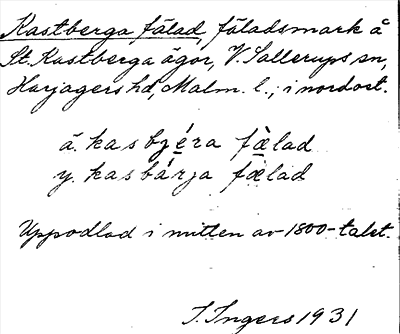 Kastberga fälad, fäladsmark å
St. Kastberga ägor, V. Sallerups sn,
Harjagers hd, Malm. l., i nordost.
ä. kasbjéra fælad
y. kasbárja fælad
Uppodlad i mitten av 1800-talet.
I. Ingers 1931